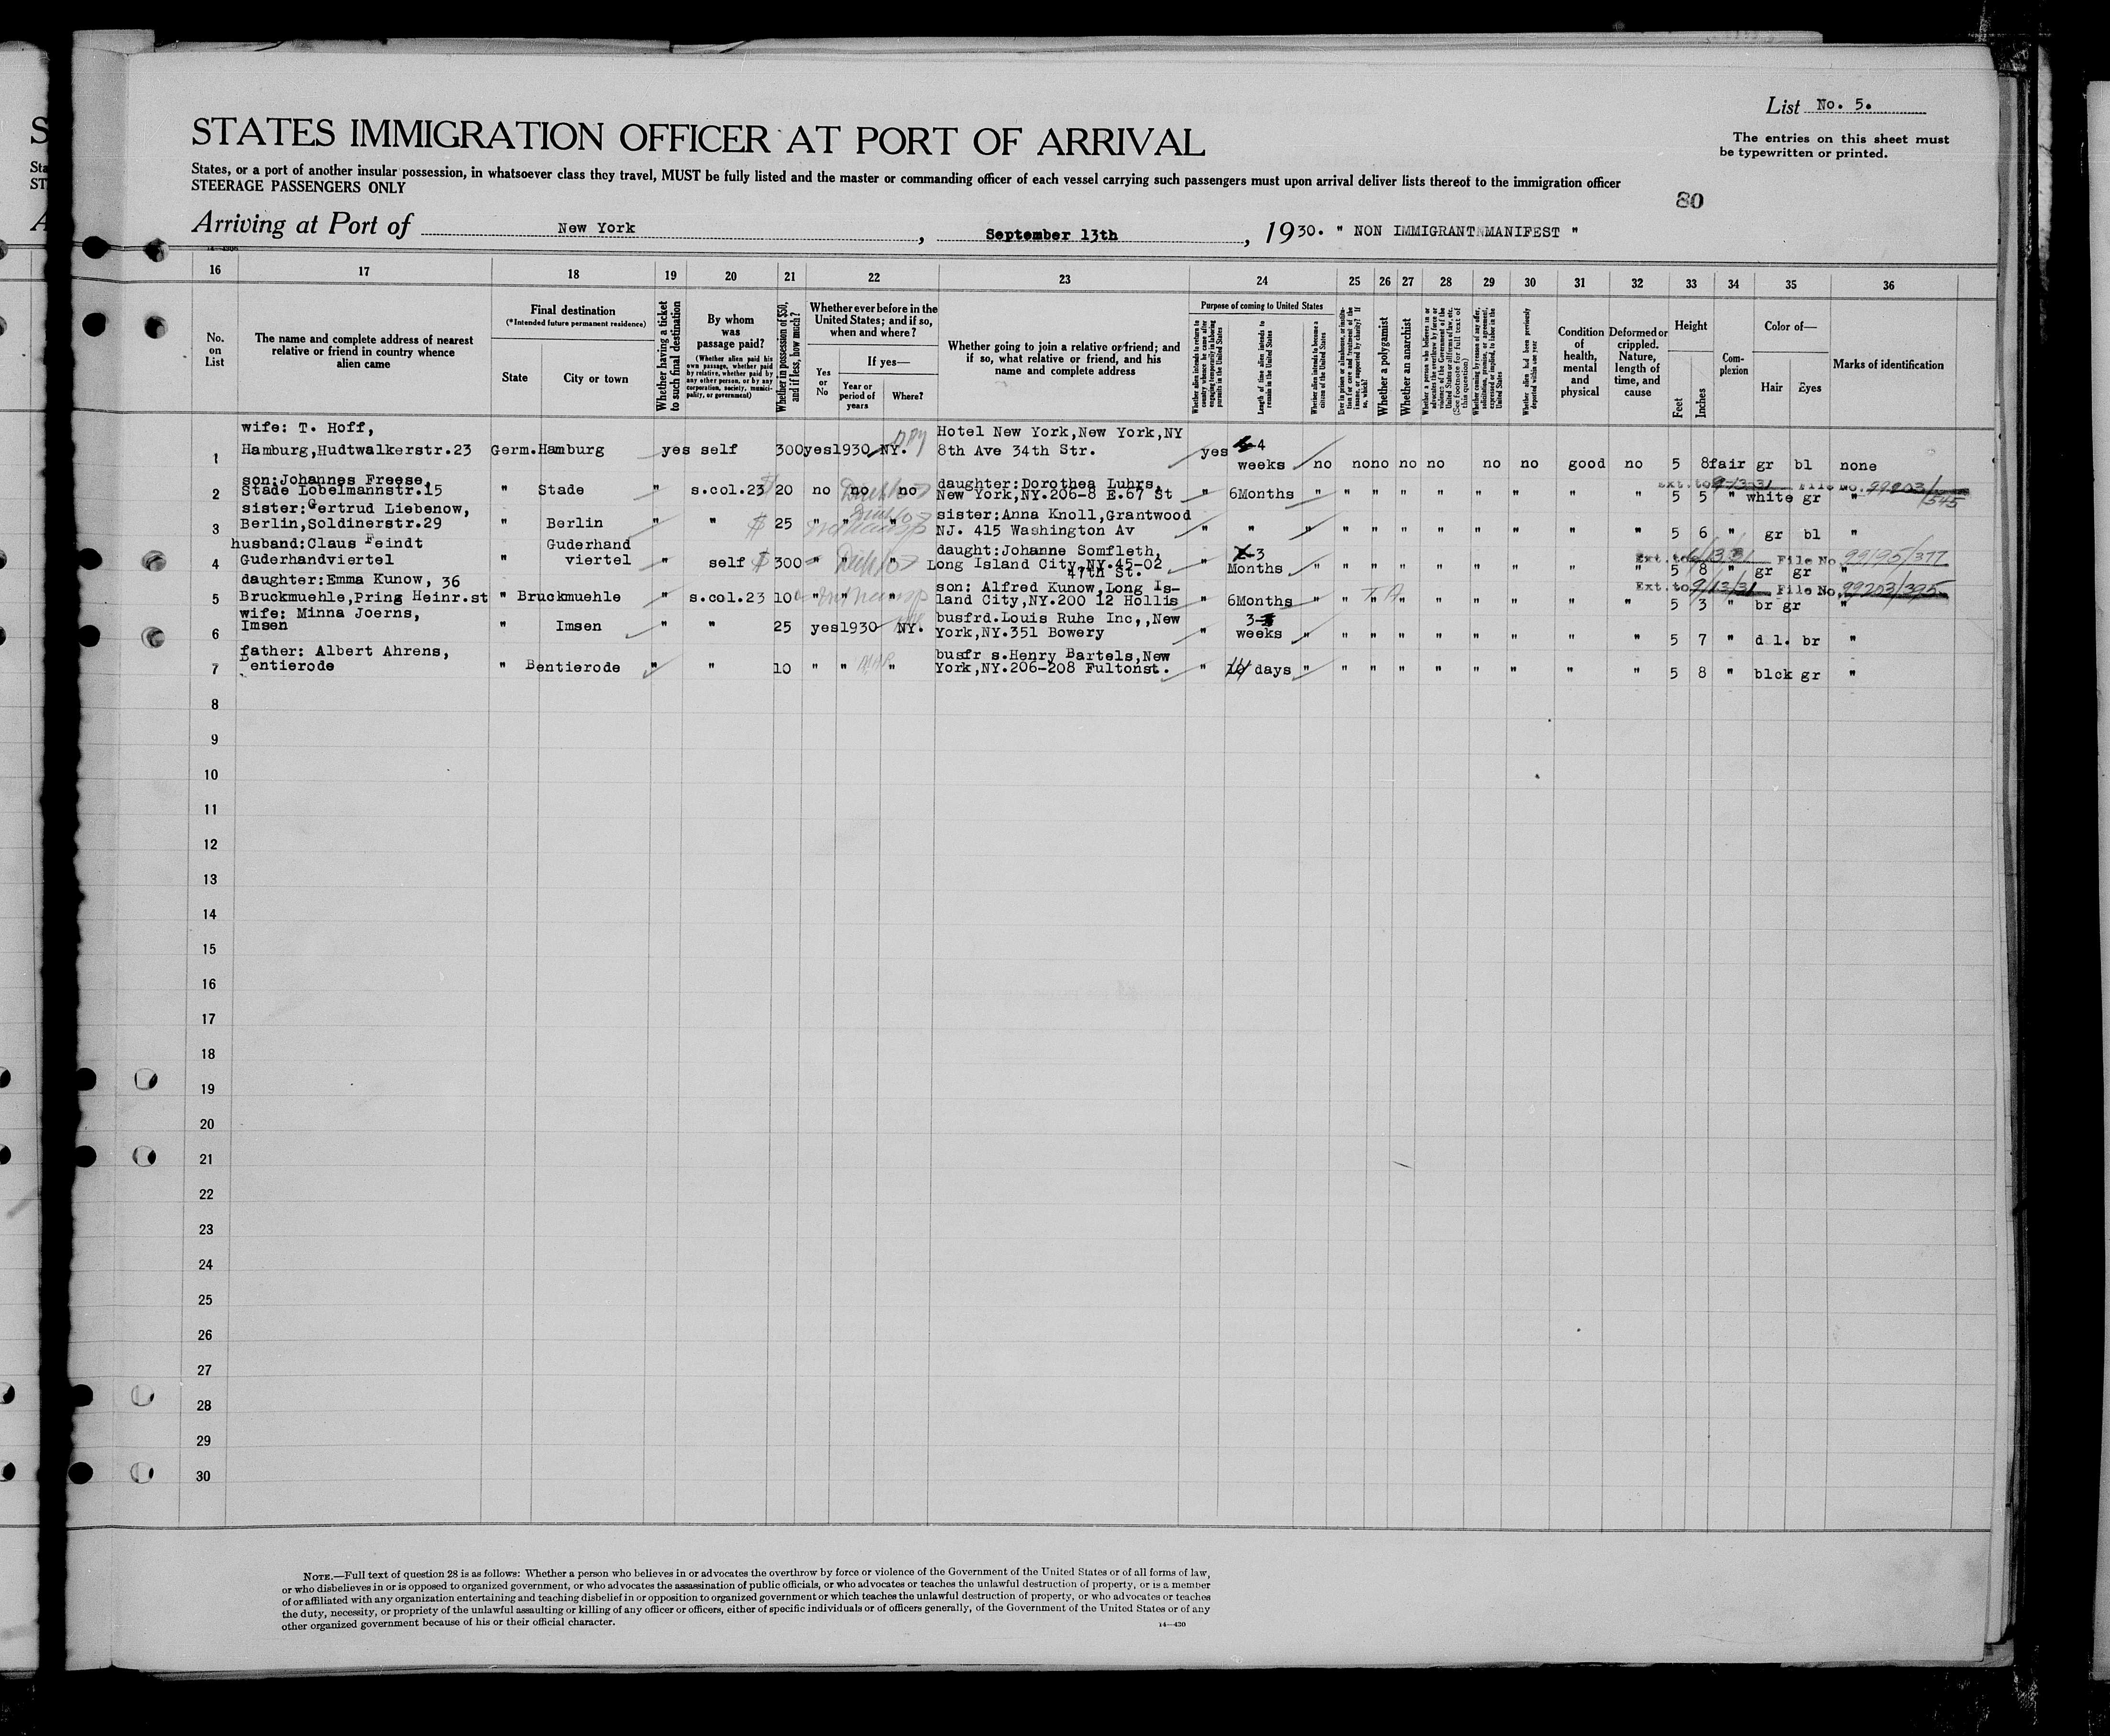 List No. 5.
STATES IMMIGRATION OFFICER AT PORT OF ARRIVAL
The entries on this sheet must
be typewritten or printed.
States, or a port of another insular possession, in whatsoever class they travel, MUST be fully listed and the master or commanding officer of each vessel carrying such passengers must upon arrival deliver lists thereof to the immigration officer
STEERAGE PASSENGERS ONLY
80
Arriving at Port of New York, September 13th, 1930. " NON IMMIGRANT MANIFEST "
16 17 18 19 20 21 22 23 24 25 26 27 28 29 30 31 32 33 34 35 36
No. on List
The name and complete address of nearest relative or friend in country whence alien came
Final destination
(*Intended future permanent residence)
State
City or town
Whether having a ticket to such final destination
By whom was passage paid?
(Whether alien paid his own passage, whether paid by relative, whether paid by any other person, or by any corporation, society, municipality, or government)
Whether in possession of $50, and if less, how much?
Whether ever before in the United States; and if so, when and where?
Yes or No
If yes—
Year or period of years
Where?
Whether going to join a relative or friend; and if so, what relative or friend, and his name and complete address
Purpose of coming to United States
Whether alien intends to return to country whence he came after engaging temporarily in laboring pursuits in the United States
Length of time alien intends to remain in the United States
Whether alien intends to become a citizen of the United States
Ever in prison or almshouse, or institution for care and treatment of the insane, or supported by charity? If so, which?
Whether a polygamist
Whether an anarchist
Whether a person who believes in or advocates the overthrow by force or violence of the Government of the United States or all forms of law, etc. (See footnote for full text of this question)
Whether coming by reason of any offer, solicitation, promise, or agreement, expressed or implied, to labor in the United States
Whether alien had been previously deported within one year
Condition of health, mental and physical
Deformed or crippled. Nature, length of time, and cause
Height
Feet
Inches
Complexion
Color of—
Hair
Eyes
Marks of identification
wife: T. Hoff, Hotel New York,New York,NY
1 Hamburg,Hudtwalkerstr.23 Germ. Hamburg yes self 300 yes 1930 NY. 8th Ave 34th Str. yes 4 weeks no no no no no no no good no 5 8 fair gr bl none
son:Johannes Freese, daughter:Dorothea Luhrs, Ext. to File No. 99203/545
2 Stade Lobelmannstr.15 " Stade " s.col.23 20 no no no New York,NY.206-8 E.67 St " 6Months " " " " " " " " " 5 5 " white gr "
sister:Gertrud Liebenow, sister:Anna Knoll,Grantwood
3 Berlin,Soldinerstr.29 " Berlin " " $ 25 " " " NJ. 415 Washington Av " " " " " " " " " " " 5 6 " gr bl "
husband:Claus Feindt Guderhand daught:Johanne Somfleth, 3 Ext. to File No. 99195/377
4 Guderhandviertel " viertel " self $ 300 " " " Long Island City,NY.45-02 " Months " " " " " " " " " 5 8 " gr gr "
47th St.
daughter:Emma Kunow, 36 son: Alfred Kunow,Long Is- Ext. to 9/13/31 File No. 99203/395
5 Bruckmuehle,Pring Heinr.st " Bruckmuehle " s.col.23 100 " " " land City,NY.200 12 Hollis " 6Months " " " " " " " " " 5 3 " br gr "
wife: Minna Joerns, busfrd.Louis Ruhe Inc,,New 3
6 Imsen " Imsen " " 25 yes 1930 NY. York,NY.351 Bowery " weeks " " " " " " " " " 5 7 " d l. br "
father: Albert Ahrens, busfr s.Henry Bartels,New
7 Bentierode " Bentierode " " 10 " " " York,NY.206-208 Fultonst. " 14 days " " " " " " " " " 5 8 " blck gr "
8
9
10
11
12
13
14
15
16
17
18
19
20
21
22
23
24
25
26
27
28
29
30
NOTE.—Full text of question 28 is as follows: Whether a person who believes in or advocates the overthrow by force or violence of the Government of the United States or of all forms of law,
or who disbelieves in or is opposed to organized government, or who advocates the assassination of public officials, or who advocates or teaches the unlawful destruction of property, or is a member
of or affiliated with any organization entertaining and teaching disbelief in or opposition to organized government or which teaches the unlawful destruction of property, or who advocates or teaches
the duty, necessity, or propriety of the unlawful assaulting or killing of any officer or officers, either of specific individuals or of officers generally, of the Government of the United States or of any
other organized government because of his or their official character.
14—430